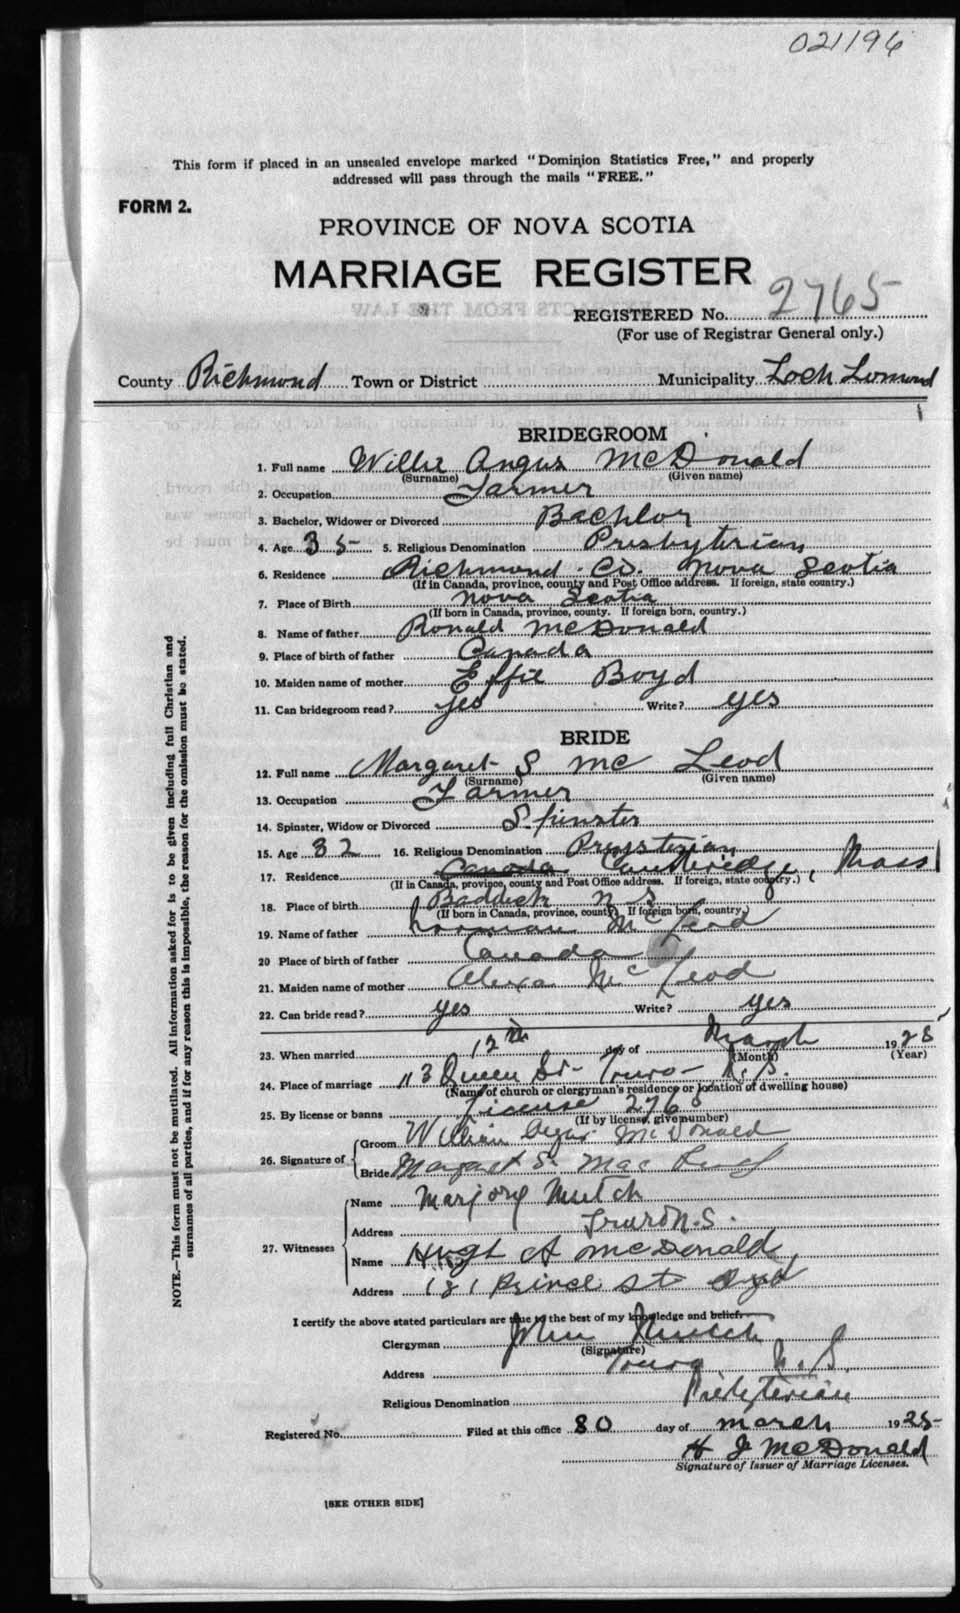 021196
This form if placed in an unsealed envelope marked "Dominion Statistics Free," and properly
addressed will pass through the mails "FREE."
FORM 2.
PROVINCE OF NOVA SCOTIA
MARRIAGE REGISTER
REGISTERED No. 2765
(For use of Registrar General only.)
County Richmond Town or District Municipality Loch Lomond
BRIDEGROOM
1. Full name Willie Angus McDonald
(Surname) (Given name)
2. Occupation Farmer
3. Bachelor, Widower or Divorced Bachlor
4. Age 35 5. Religious Denomination Presbyterian
6. Residence Richmond Co. Nova Scotia
(If in Canada, province, county and Post Office address. If foreign, state country.)
7. Place of Birth Nova Scotia
(If born in Canada, province, county. If foreign born, country.)
8. Name of father Ronald McDonald
9. Place of birth of father Canada
10. Maiden name of mother Effie Boyd
11. Can bridegroom read? yes Write? yes
BRIDE
12. Full name Margaret S McLeod
(Surname) (Given name)
13. Occupation Farmer
14. Spinster, Widow or Divorced Spinster
15. Age 32 16. Religious Denomination
17. Residence Canada Cambridge, Mass
(If in Canada, province, county and Post Office address. If foreign, state country.)
18. Place of birth Baddeck N S
(If born in Canada, province, county. If foreign born, country.)
19. Name of father Norman McLeod
20 Place of birth of father Canada
21. Maiden name of mother McLeod
22. Can bride read? yes Write? yes
23. When married 12th day of March 1925
(Month) (Year)
24. Place of marriage 113 Queen St- Truro- N.S.
(Name of church or clergyman's residence or location of dwelling house)
25. By license or banns License 2765
(If by license, give number)
26. Signature of Groom William Angus McDonald
Bride Margaret S. MacLeod
27. Witnesses Name Marjory Mutch
Address Truro N.S.
Name Hugh A McDonald
Address 181 Prince St
I certify the above stated particulars are true to the best of my knowledge and belief.
Clergyman John Mutch
(Signature)
Address Truro N.S.
Religious Denomination Presbyterian
Registered No. Filed at this office 30 day of March 1925
H J McDonald
Signature of Issuer of Marriage Licenses.
[SEE OTHER SIDE]
NOTE.—This form must not be mutilated. All information asked for is to be given including full Christian and
surnames of all parties, and if for any reason this is impossible, the reason for the omission must be stated.